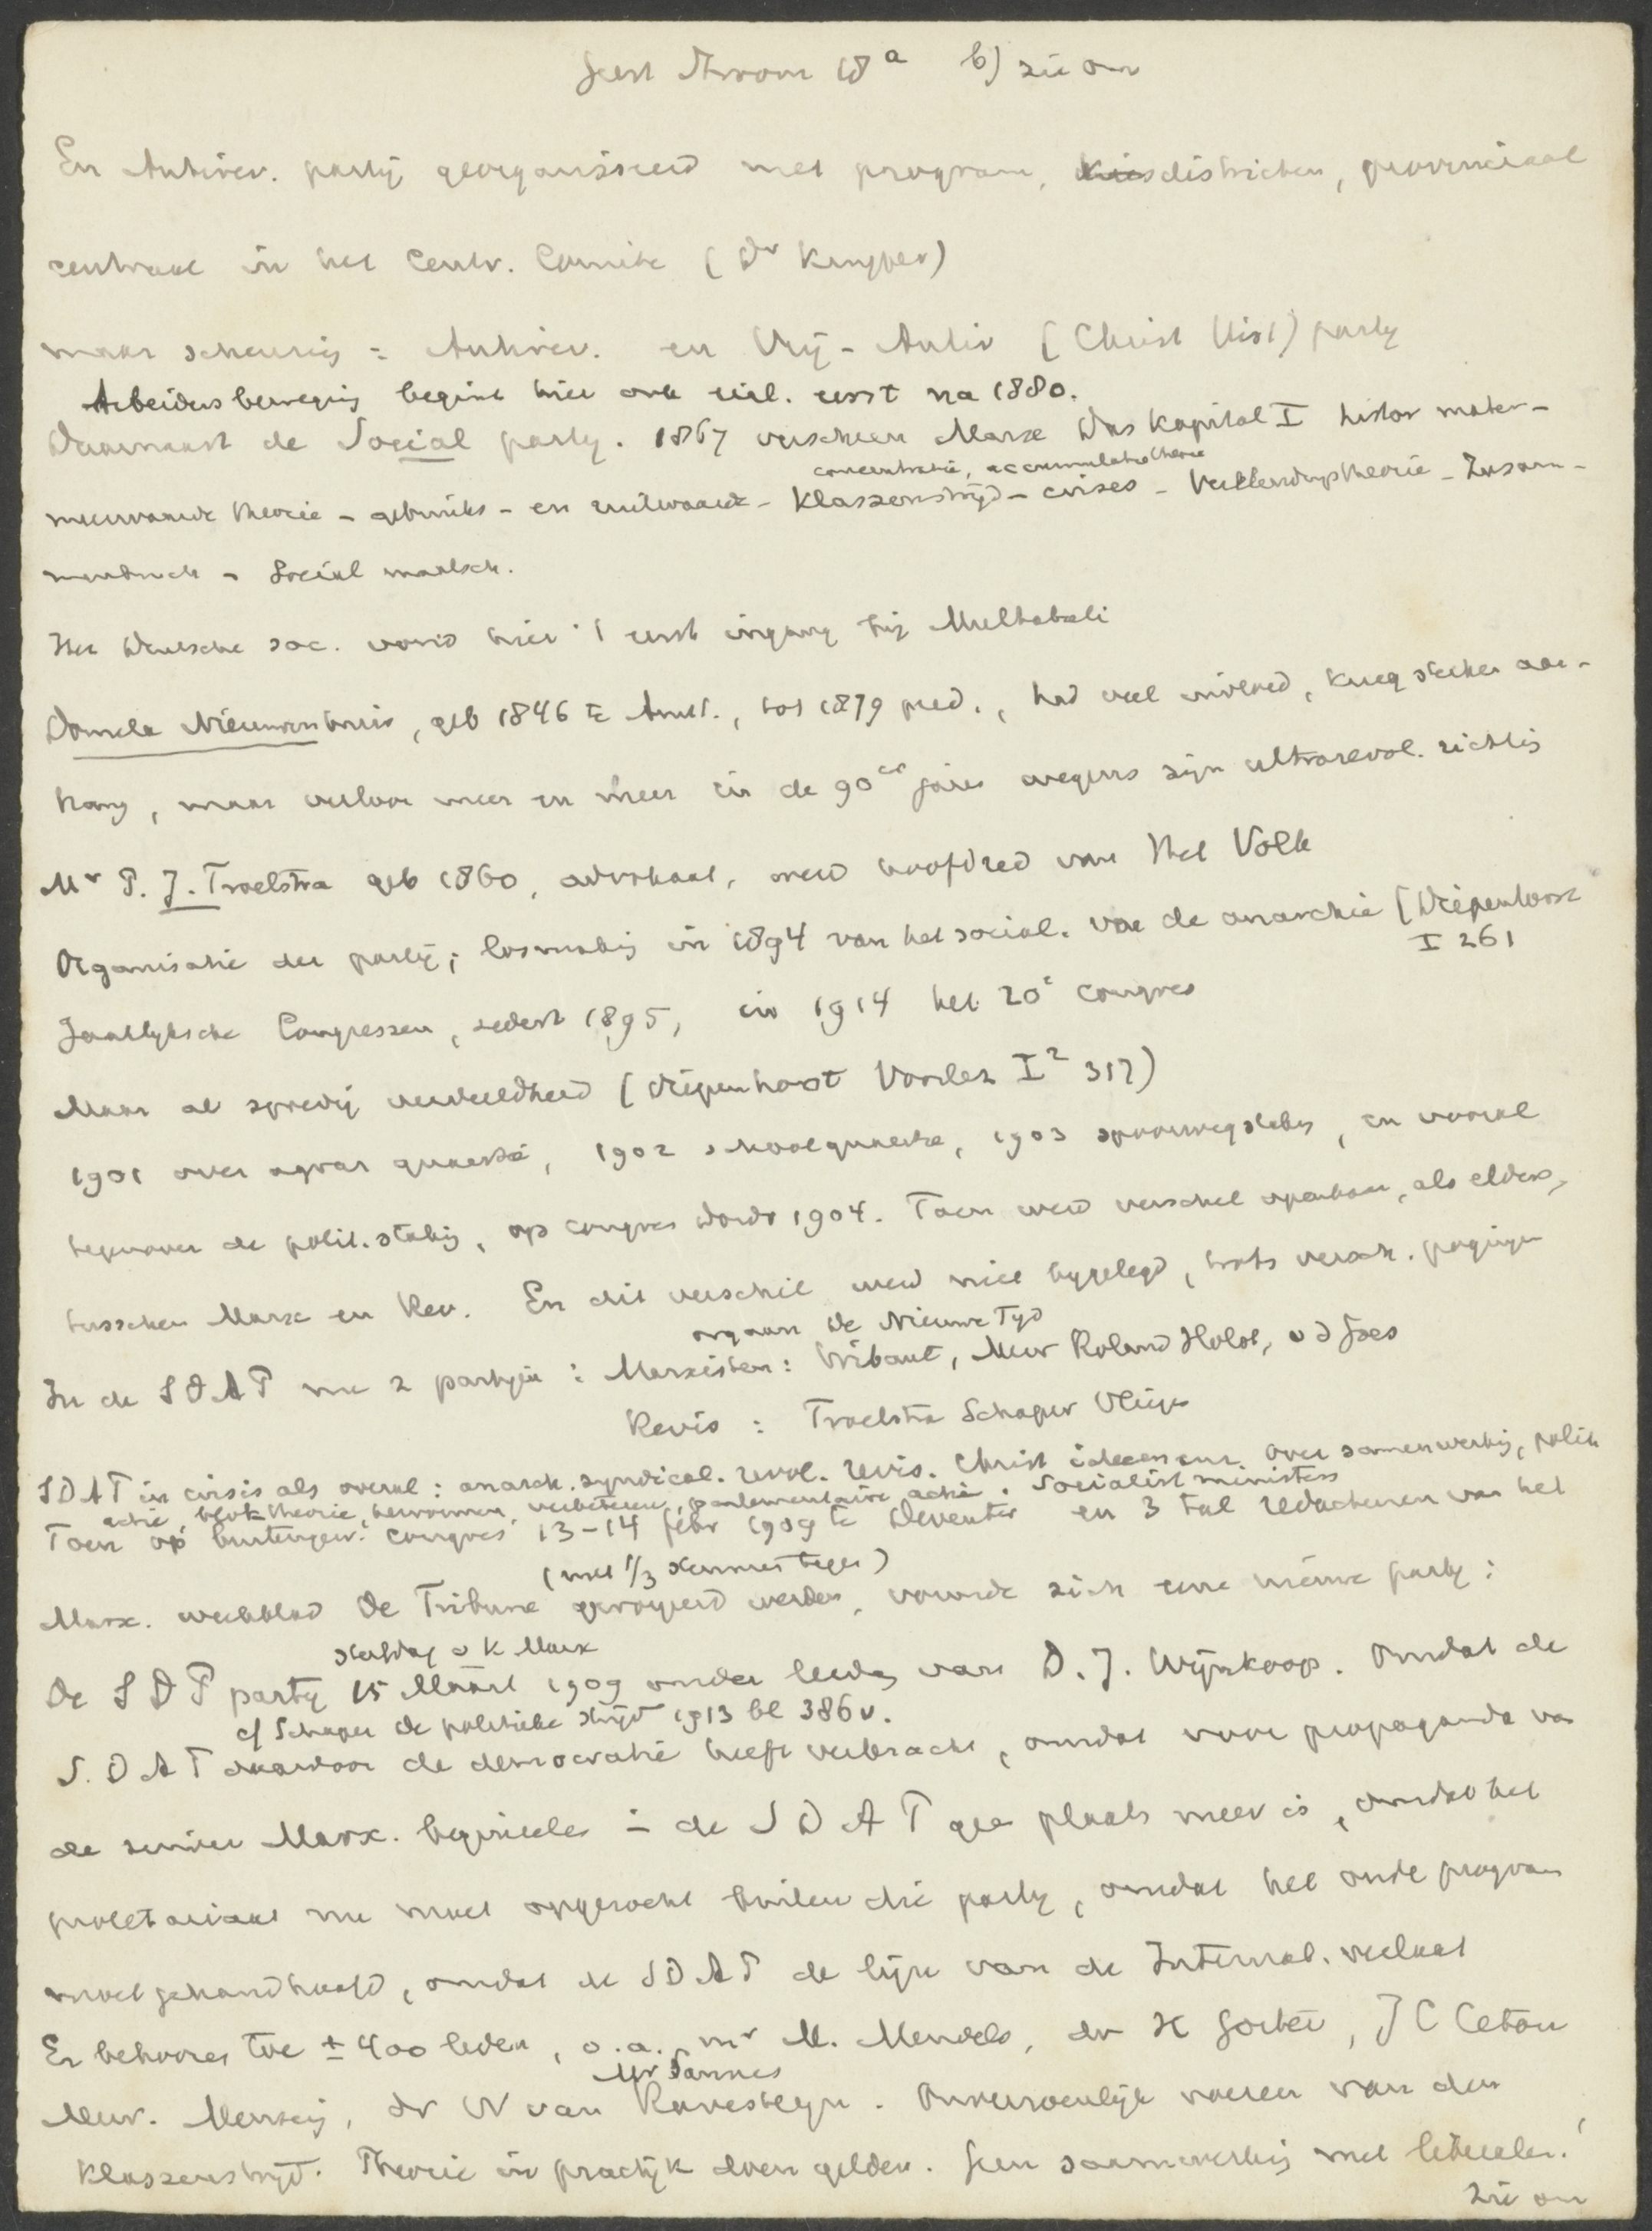 Geest stroom 18a b) zie om
En Antirev. partij georganiseerd met program, kiesdistricten, provinciaal
centraal in het Centr. Comite (Dr Kuyper)
maar scheuring = Antirev. en Vrij-Antir (Christ Hist) party
Arbeidersbeweging begint hier ook eerst na 1880.
Daarnaast de Social party. 1867 verscheen Marx Das Kapital I histor mater-
concentratie, accumulatietheorie
meerwaarde theorie - gebruiks- en ruilwaarde - Klassenstrijd - crises - Verelendungstheorie - Zusam-
menbruch - Social maatsch.
Het Duitsche soc. vond hier 't eerst ingang bij Multatuli
Domela Nieuwenhuis, geb 1846 te Amst., tot 1879 pred., had veel invloed, kreeg sterken aan-
hang, maar verloor meer en meer in de 90er jaren wegens zijn ultrarevol. richting
Mr P. J. Troelstra geb 1860, advokaat, werd hoofdred van Het Volk
Organisatie der partij; losmaking in 1894 van het social. van de anarchie (Diepenhorst
I 261
Jaarlyksche Congressen, sedert 1895, in 1914 het 20e congres
Maar al spoedig verdeeldheid (Diepenhorst Voorlez I2 317)
1901 over agrar quaestie, 1902 schoolquaestie, 1903 spoorwegstaking, en vooral
tegenover de polit. staking, op congres Dordr 1904. Toen werd verschil openbaar, als elders,
tusschen Marx en Rev. En dit verschil werd niet bygelegd, trots versch. pogingen
orgaan De Nieuwe Tyd
In de SDAP nu 2 partyen : Marxisten: Wibaut, Mevr Roland Holst, vd Goes
Revis : Troelstra Schaper Vliegen
SDAP in crisis als overal : anarch. syndical. revol. revis. Christ over samenwerking, polit
actie, bloktheorie, hervormen, verbeteren, parlementaire actie. Socialist ministers
Toen op buitengew. congres 13-14 febr 1909 te Deventer en 3 tal redacteuren van het
(met 1/3 stemmen tegen)
Marx. weekblad De Tribune geroyeerd werden, vormde zich eene nieuwe party:
sterfdag v K Marx
De SDP party 15 Maart 1909 onder leiding van D. J. Wijnkoop. Omdat de
cf Schaper De politieke strijd 1913 bl 386 v.
S. D A P daardoor de democratie heeft verkracht, omdat voor propaganda van
de zuiver Marx. beginselen in de S D A P geen plaats meer is, omdat het
proletariaat nu moet opgezocht buiten die party, omdat het oude program
moet gehandhaafd, omdat de SDAP de lijn van de Internat. verlaat
Er behooren toe ± 400 leden, o.a. mr M. Mendels, dr H Gorter, J C Ceton
Mr Sannes
Mevr. Mensing, dr W van Ravesteyn. Onverzoenlijk voeren van den
Klassenstrijd. Theorie in practijk doen gelden. Geen saamwerking met liberalen!
Zie om